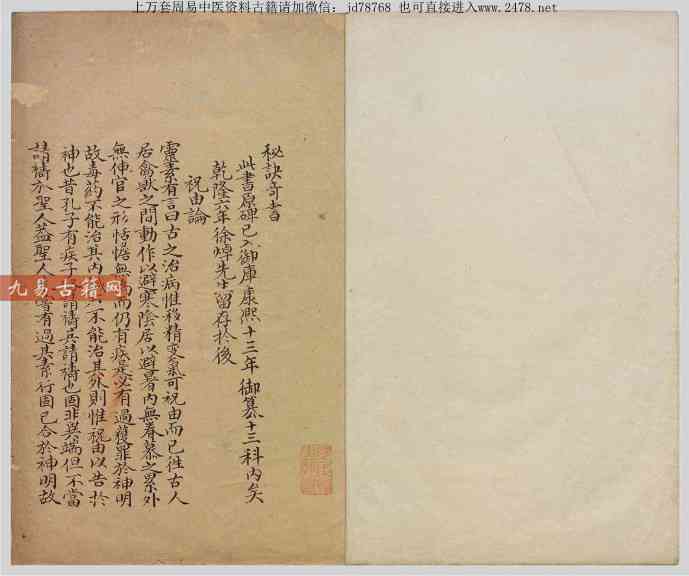 上万套周易中医资料古籍请加微信：jd78768 也可直接进入www.2478.net
秘訣奇書
此書原碑已入御庫康熙十三年 御纂十三科内矣
乾隆六年徐焯先生留存於後
祝由論
靈素有言曰古之治病惟移精变氣可祝由而已徃古人
居禽獸之間動作以避寒陰居以避暑内無眷慕之累外
無伸官之形恬憺無而仍有疾是必有過獲罪於神明
故毒药不能治其内不能治其外則惟祝由以告於
神也昔孔子有疾子請禱夫請禱也固非異端但不當
請禱於聖人蓋聖人未嘗有過其素行固已合於神明故
九易古籍网